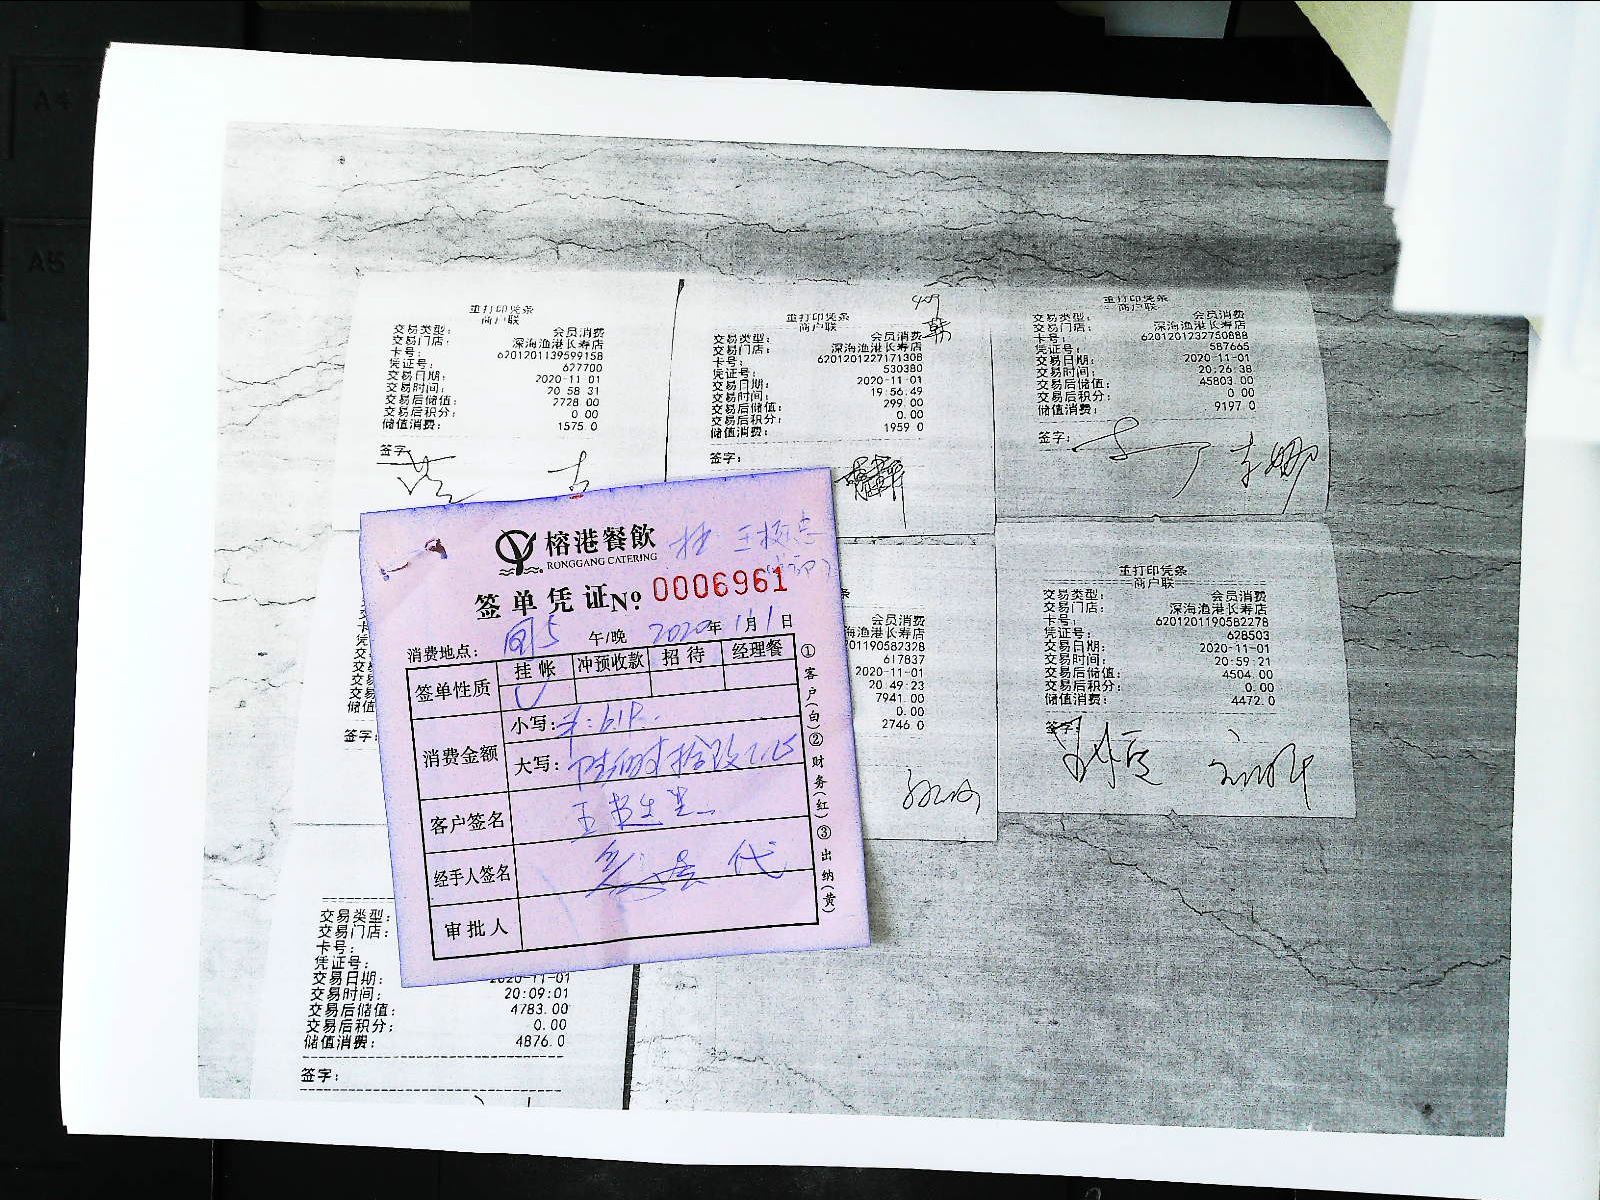 重打印凭条
商户联
交易类型: 会员消费
交易门店: 深海渔港长寿店
卡号: 6201201139599158
凭证号: 627700
交易日期: 2020-11-01
交易时间: 20 58 31
交易后储值: 2728 00
交易后积分: 0 00
储值消费: 1575 0
签字:
重打印凭条
商户联
交易类型: 会员消费
交易门店: 深海渔港长寿店
卡号: 6201201227171308
凭证号: 530380
交易日期: 2020-11-01
交易时间: 19:56:49
交易后储值: 299.00
交易后积分: 0.00
储值消费: 1959 0
签字:
重打印凭条
商户联
交易类型: 会员消费
交易门店: 深海渔港长寿店
卡号: 6201201232750888
凭证号: 587665
交易日期: 2020-11-01
交易时间: 20:26:38
交易后储值: 45803.00
交易后积分: 0.00
储值消费: 9197 0
签字:
榕港餐飲
RONGGANG CATERING
签单凭证 Nº 0006961
消费地点: 午/晚 2020年11月1日
签单性质 挂帐 冲预收款 招待 经理餐
消费金额 小写:
大写:
客户签名
经手人签名 代
审批人
①客户(白)②财务(红)③出纳(黄)
签字:
条
会员消费
海渔港长寿店
01190582328
617837
2020-11-01
20:49:23
7941 00
0.00
2746 0
重打印凭条
商户联
交易类型: 会员消费
交易门店: 深海渔港长寿店
卡号: 6201201190582278
凭证号: 628503
交易日期: 2020-11-01
交易时间: 20:59:21
交易后储值: 4504.00
交易后积分: 0.00
储值消费: 4472.0
签字:
交易类型:
交易门店:
卡号:
凭证号:
交易日期: 2020-11-01
交易时间: 20:09:01
交易后储值: 4783.00
交易后积分: 0.00
储值消费: 4876.0
签字: